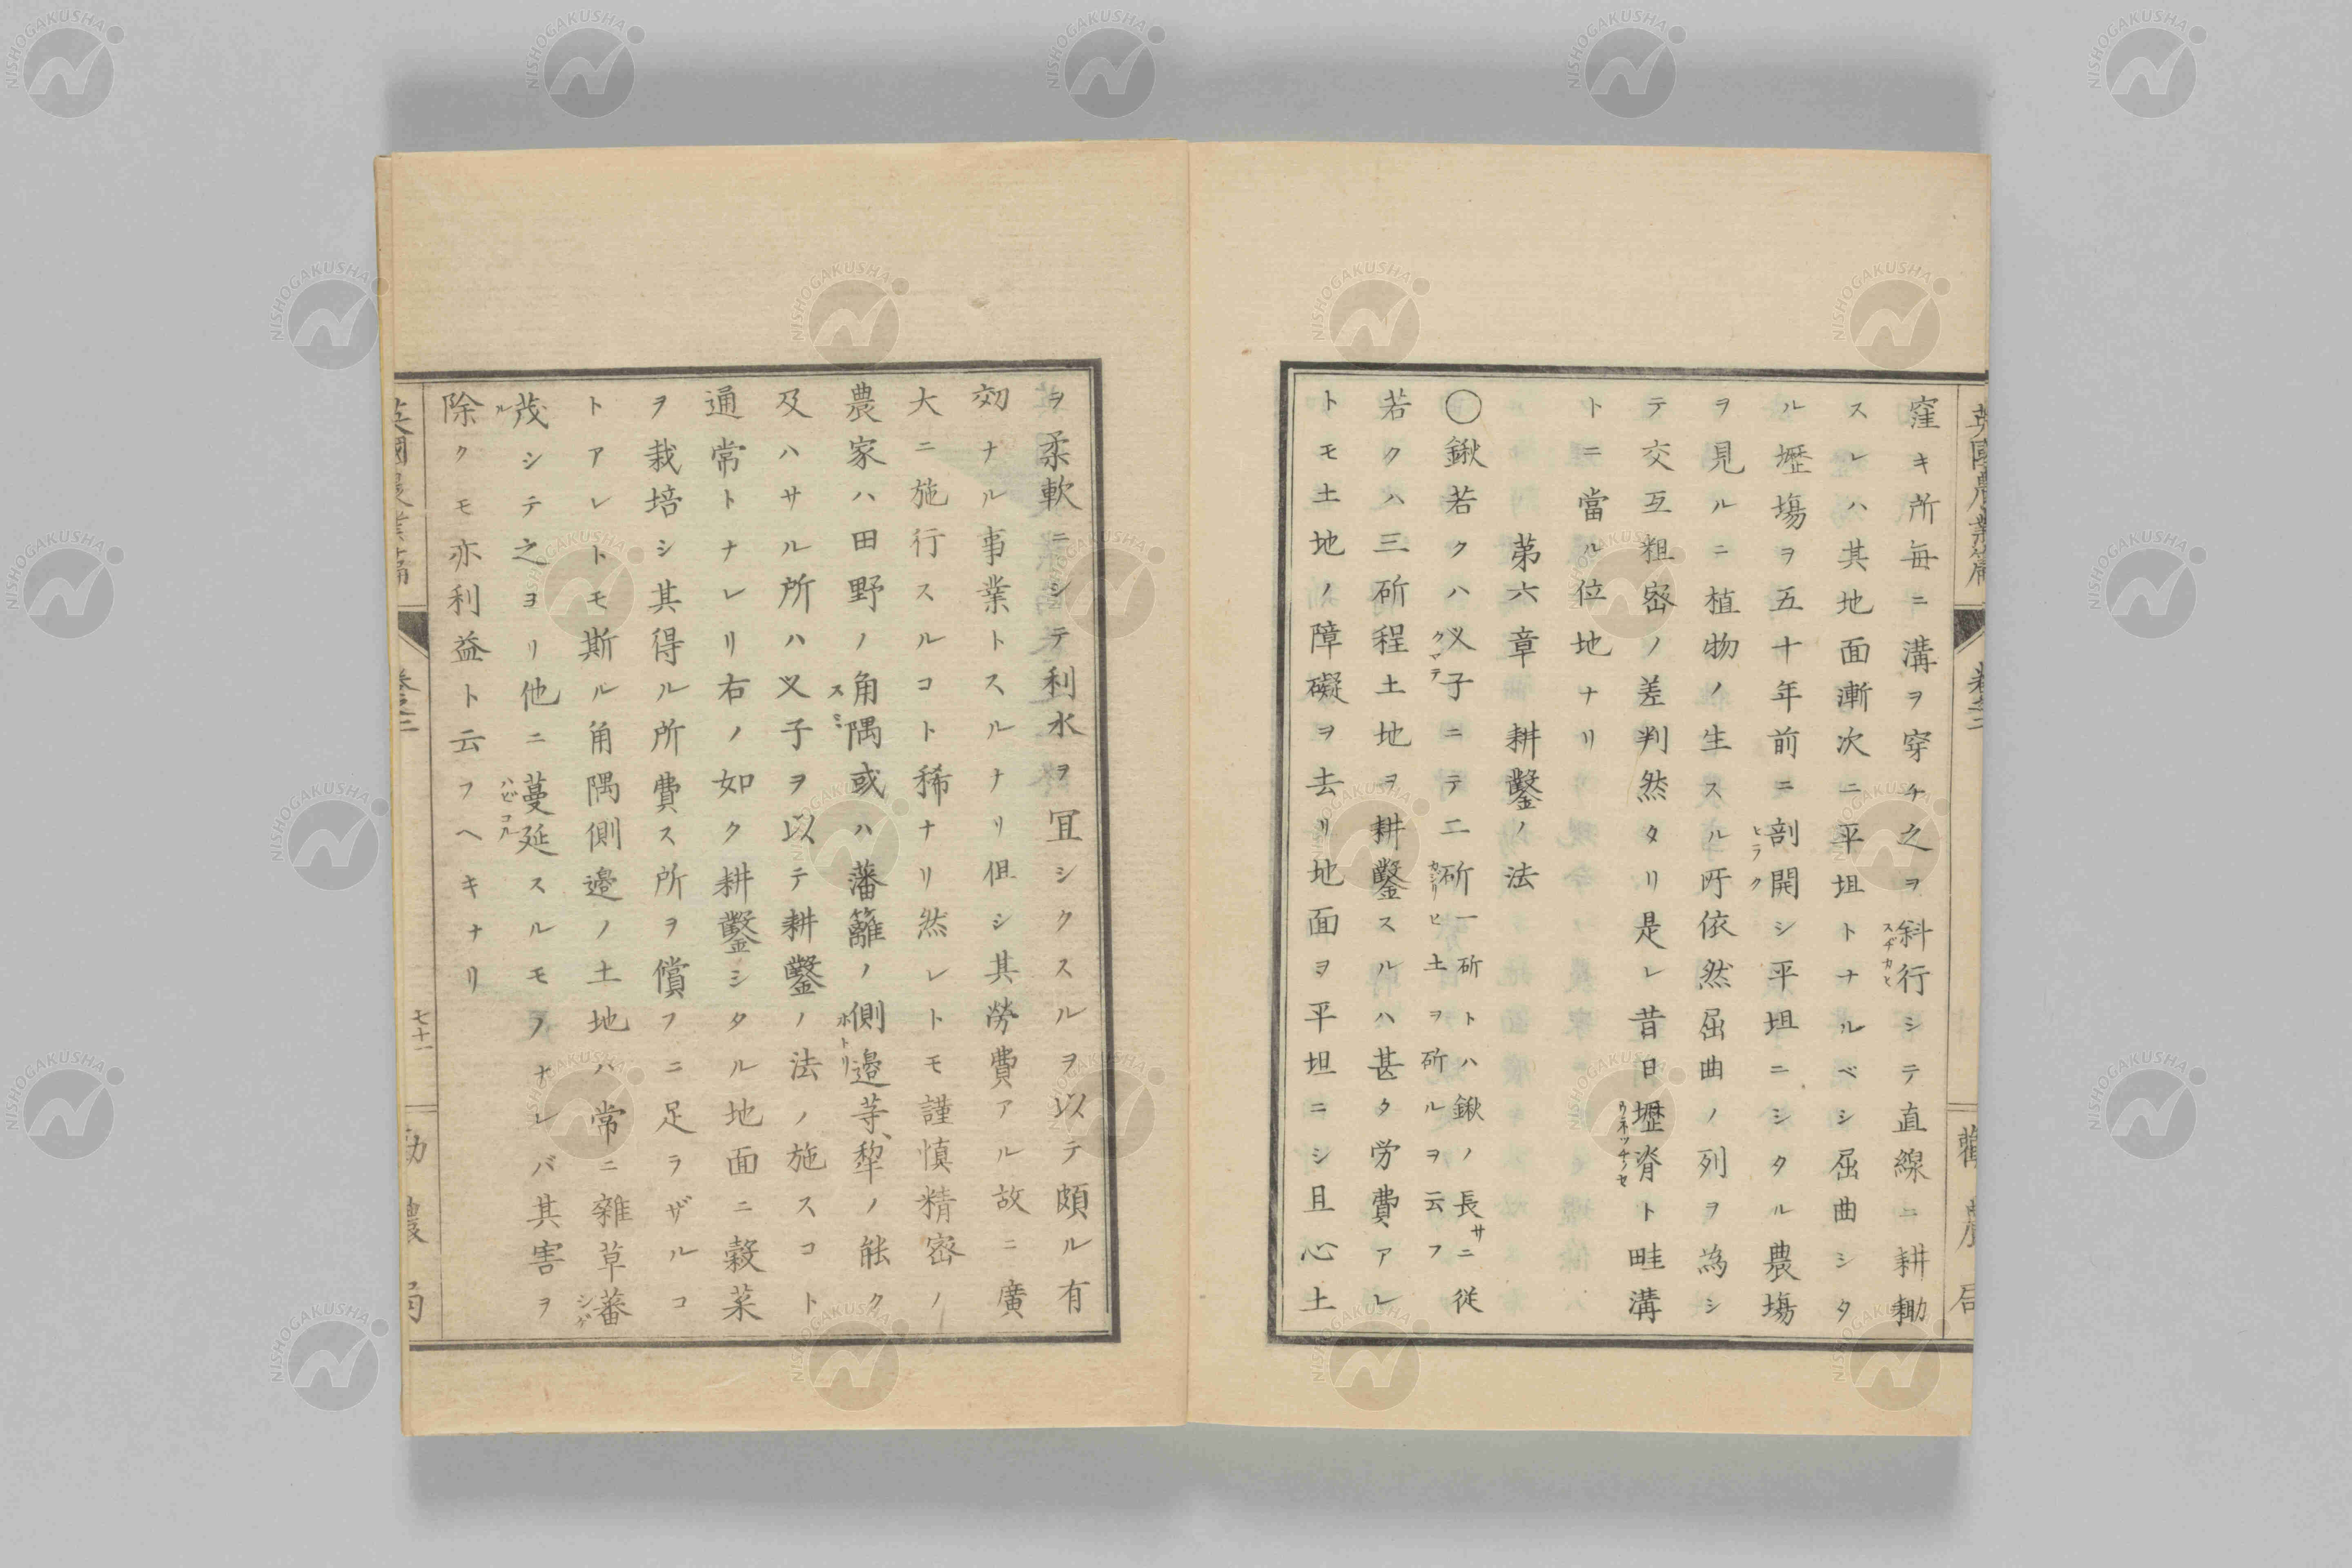 英國農業篇 卷之二 勸農局
窪キ所毎ニ溝ヲ穿チ之ヲ斜行シテ直線ニ耕耡
スヂカヒ
スレハ其地面漸次ニ平坦トナルベシ屈曲シタ
ル壢塲ヲ五十年前ニ剖開シ平坦ニシタル農塲
ヒラク
ヲ見ルニ植物ノ生スル所依然屈曲ノ列ヲ為シ
テ交互粗密ノ差判然タリ是レ昔日壢脊ト畦溝
ウネツチノセ
トニ當ル位地ナリ
第六章 耕鑿ノ法
〇鍬若クハ义子ニテ二斫一斫トハ鍬ノ長サニ従ヒ土ヲ斫ルヲ云フ
クマデ
若クハ三斫程土地ヲ耕鑿スルハ甚タ労費アレ
トモ土地ノ障礙ヲ去リ地面ヲ平坦ニシ且心土
ヲ柔軟ニシテ利水ヲ冝シクスルヲ以テ頗ル有
効ナル事業トスルナリ但シ其勞費アル故ニ廣
大ニ施行スルコト稀ナリ然レトモ謹慎精密ノ
農家ハ田野ノ角隅或ハ藩籬ノ側邉等、犂ノ能ク
スミ
ホトリ
及ハサル所ハ义子ヲ以テ耕鑿ノ法ノ施スコト
通常トナレリ右ノ如ク耕鑿シタル地面ニ穀菜
ヲ栽培シ其得ル所費ス所ヲ償フニ足ラザルコ
トアレトモ斯ル角隅側邉ノ土地ハ常ニ雜草蕃
シゲ
茂シテ之ヨリ他ニ蔓延スルモノナレバ其害ヲ
ル
ハビコル
除クモ亦利益ト云フヘキナリ
英國農業篇 卷之二 七十一 勸農局